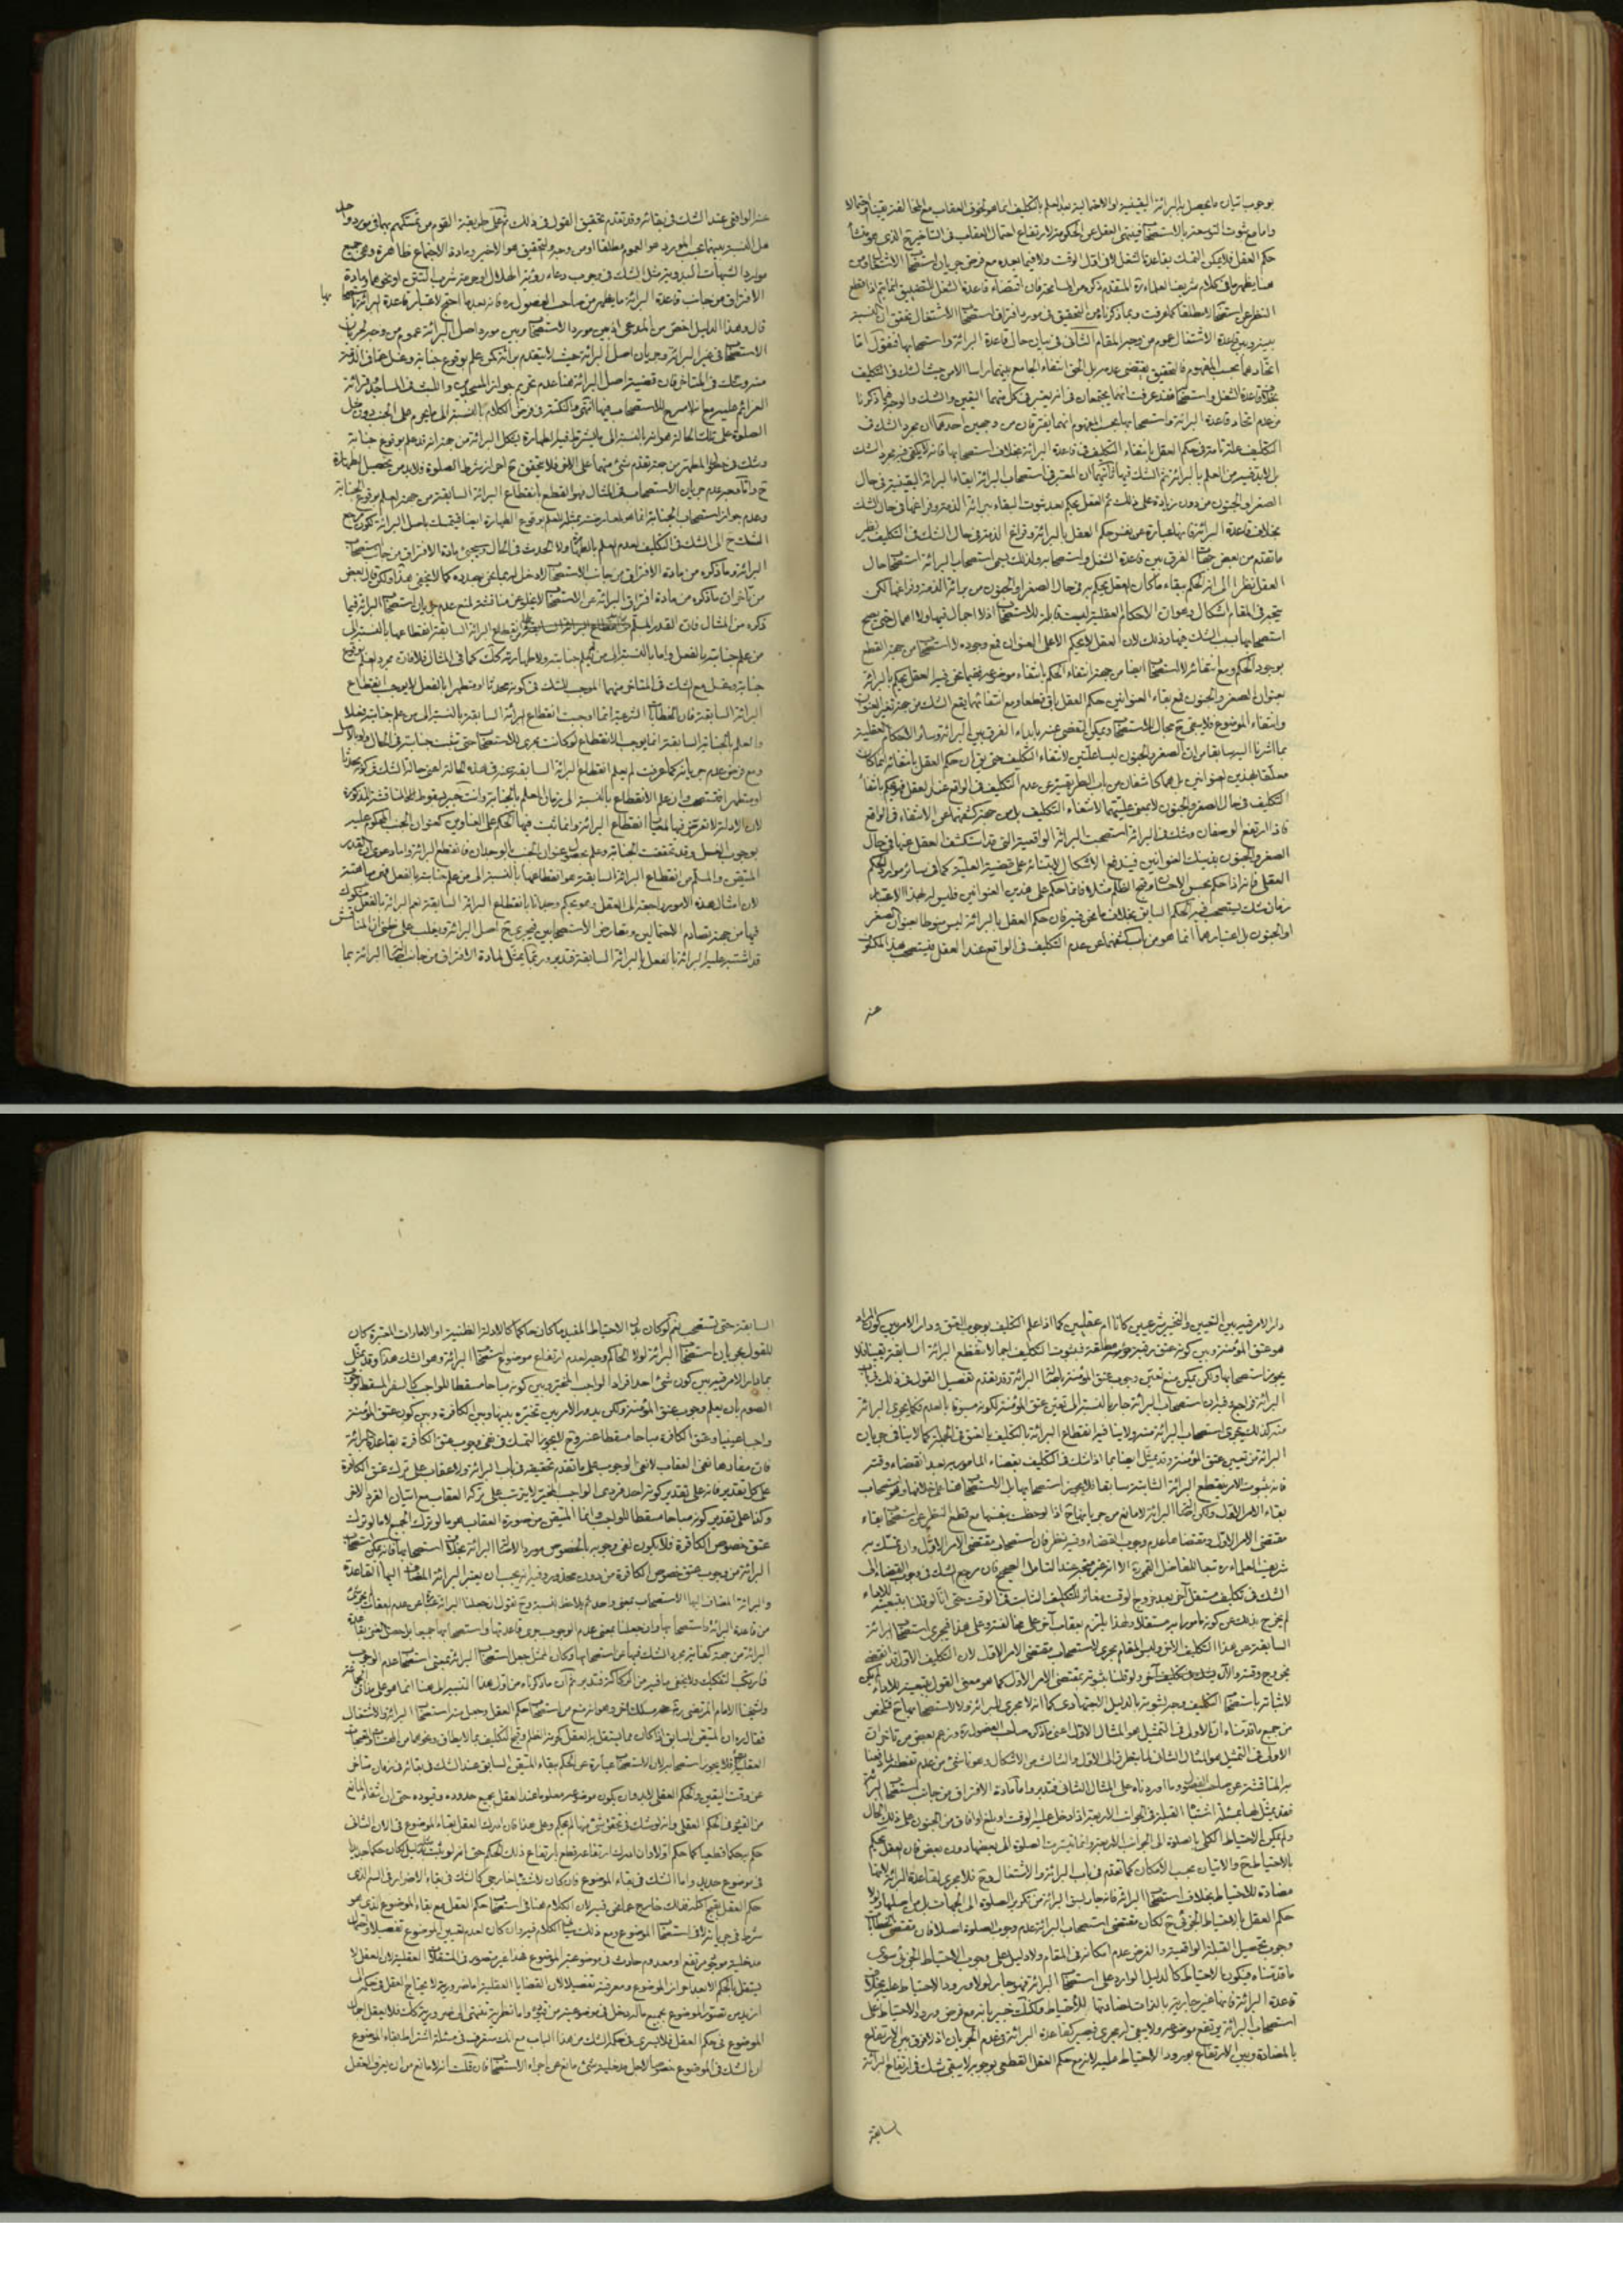 بوجوب اتيان ما يحصل به البرائة اليقينية او الاحتمالية بعد العلم بالتكليف انما هو لخوف العقاب مع المخالفة يقينا او احتمالا
واما مع ثبوت التوسعة بالاستصحاب فينتهى العقل عن الحكومة لارتفاع احتمال العقاب فى التاخير ح الذى هو منشأ
حكم العقل فلا يمكن التمسك بقاعدة الشغل لا فى اول الوقت ولا فيما بعده مع فرض جريان استصحاب الاشتغال ومن
هنا يظهر ما فى كلام شريف العلماء ره المتقدم ذكره من المسامحة فان اقتضاء قاعدة الشغل للتضييق انما يتم اذا قطع
النظر عن استصحاب الامر مطلقا كما عرفت وبما ذكرنا من التحقيق فى مورد افتراق استصحاب الاشتغال تحقق ان النسبة
بينه وبين قاعدة الاشتغال عموم من وجه المقام الثانى فى بيان حال قاعدة البرائة واستصحابها فنقول اما
اتحادهما بحسب المفهوم فالتحقيق يقتضى عدمه بل الحق انتفاء الجامع بينهما راسا الامر حيث الشك فى التكليف
بخلاف قاعدة الشغل واستصحابه فقد عرفت انهما يجتمعان فى انه يعتبر فى كل منهما اليقين والشك والوجه فيما ذكرنا
من عدم اتحاد قاعدة البرائة واستصحابها بحسب المفهوم انهما يفترقان من وجهين احدهما ان مجرد الشك فى
التكليف علة تامة فى حكم العقل بانتفاء التكليف فى قاعدة البرائة بخلاف استصحابها فانه لا يكفى فيه مجرد الشك
بل لابد فيه من العلم بالبرائة ثم الشك فيها ثانيهما ان المعتبر فى استصحاب البرائة ابقاء البرائة اليقينية فى حال
الصغر او الجنون من دون زيادة على ذلك ثم العقل يحكم بعد ثبوت البقاء ببرائة الذمة وفراغها فى حال الشك
بخلاف قاعدة البرائة فانها عبارة عن نفس حكم العقل بالبرائة وفراغ الذمة فى حال الشك فى التكليف نظير
ما تقدم من بعض الفرق بين قاعدة الشغل واستصحابه ولذلك يسمى استصحاب البرائة استصحاب حال
العقل نظرا الى انه الحكم ببقاء ما كان العقل يحكم به فى حال الصغر او الجنون من برائة الذمة وفراغها لكن
يتجه فى المقام اشكال وهو ان الاحكام العقلية ليست قابلة للاستصحاب اذ لا اجمال فيها ولا اهمال حتى يصح
استصحابها بسبب الشك فيها وذلك لان العقل لا يحكم الا على العنوان فمع وجوده لا استصحاب من جهة القطع
بوجود الحكم ومع انتفائه لا استصحاب ايضا من جهة انتفاء الحكم بانتفاء موضوعه ففيما نحن فيه العقل يحكم بالبرائة
بعنوان الصغر والجنون فمع بقاء العنوانين حكم العقل باق قطعا ومع انتفائهما يقع الشك من جهة تغير العنوان
وانتفاء الموضوع فلا يبقى ح مجال للاستصحاب ويمكن التفصى عنه بابداء الفرق بين البرائة وسائر الاحكام العقلية
بما اشرنا اليه سابقا من ان الصغر والجنون ليسا علتين لانتفاء التكليف حتى يق ان حكم العقل بانتفائه انما كان
معلقا بهذين العنوانين بل هما كاشفان من باب الطريقية عن عدم التكليف فى الواقع عند العقل فهو يحكم بانتفاء
التكليف فى حال الصغر والجنون لا بمعنى عليتهما لانتفاء التكليف بل من جهة كشفهما عن الانتفاء فى الواقع
فاذا ارتفع الوصفان وشك فى البرائة استصحبت البرائة الواقعية التى قد استكشف العقل عنها فى حال
الصغر والجنون بذينك العنوانين فيندفع الاشكال لابتنائه على قضية العلية كما فى سائر موارد الحكم
العقلى فانه اذا حكم بحسن الاحسان وقبح الظلم مثلا فانما حكم على هذين العنوانين فليس له بهذا الاعتبار
زمان شك يستصحب فيه الحكم السابق بخلاف ما نحن فيه فان حكم العقل بالبرائة ليس منوطا بعنوان الصغر
او الجنون بل اعتبارهما انما هو من باب كشفهما عن عدم التكليف فى الواقع عند العقل فيستصحب هذا المكشوف
عنه
عنه الواقعى عند الشك فى بقائه وقد تقدم تحقيق القول فى ذلك ثم على طريقة القوم من تمسكهم بهما فى مورد واحد
هل النسبة بينهما بحسب المورد هو العموم مطلقا او من وجه والتحقيق هو الاخير ومادة الاجتماع ظاهرة وهى جميع
موارد الشبهات البدوية مثل الشك فى وجوب دعاء رؤية الهلال او حرمة شرب التتن او نحوهما ومادة
الافتراق من جانب قاعدة البرائة ما يظهر من صاحب الفصول ره فانه بعد ما احتج لاعتبار قاعدة البرائة باستصحابها
قال وهذا الدليل اخص من المدعى اذ بين مورد الاستصحاب وبين مورد اصل البرائة عموم من وجه لجريان
الاستصحاب فى غير البرائة وجريان اصل البرائة حيث لا يتقدم برائة كمن علم بوقوع جنابة وغسل عنها فى الذمة
منه وشك فى المتاخر فان قضية اصل البرائة هنا عدم تحريم جواز المسجدين واللبث فى المساجد وقرائة
العزائم عليه مع انه لا مسرح للاستصحاب فيها انتهى
الصلوة على تلك الحالة هو انه بالنسبة الى ما يشترط فيه الطهارة يشكل البرائة من جهة انه قد علم بوقوع جنابة
وشك فى حال المطهر من جهة تقدم شئ منهما على الاخر فلا يتحقق ح احراز شرط الصلوة فلابد من تحصيل الطهارة
ح واما وجه عدم جريان الاستصحاب فى المثال فهو القطع بانقطاع البرائة السابقة من جهة العلم بوقوع الجنابة
وعدم جواز استصحاب الجنابة انما هو لمعارضته بمثله للعلم بوقوع الطهارة ايضا فيتمسك باصل البرائة لكون مرجع
الشك ح الى الشك فى التكليف لعدم العلم بالطهارة ولا الحدث فى الحال وسيجئ مادة الافتراق من جانب استصحاب
البرائة وما ذكره من مادة الافتراق من جانب الاستصحاب لا دخل له بما نحن بصدده كما لا يخفى هذا ولكن قال بعض
من تاخر ان ما ذكره من مادة افتراق البرائة عن الاستصحاب لا يخلو عن مناقشة لمنع عدم جريان استصحاب البرائة فيما
ذكره من المثال فان القدر المسلم من انقطاع البرائة السابقة انقطاعها بالنسبة الى
من علم جنابته بالفعل واما بالنسبة الى من لم يعلم جنابته ولا طهارته كك كما فى المثال فلا فان مجرد العلم بوقوع
جنابة وغسل مع الشك فى المتاخر منهما الموجب للشك فى كونه محدثا او متطهرا بالفعل لا يوجب انقطاع
البرائة السابقة فان الخطابات الشرعية انما اوجبت انقطاع البرائة السابقة بالنسبة الى من علم جنابته فعلا
والعلم بالجنابة السابقة انما يوجب الانقطاع لو كانت مجرى للاستصحاب حتى تثبت جنابته فى الحال ولو بالاصل
ومع فرض عدم جريانه كما عرفت لم يعلم انقطاع البرائة السابقة عنه فى هذه الحالة اعنى حالة الشك فى كونه محدثا
او متطهرا فتستصحب وان علم الانقطاع بالنسبة الى زمان العلم بالجنابة وانت خبير بسقوط هذه المناقشة المذكورة
لان الادلة لا تعرض فيها لبيان انقطاع البرائة وانما ثبت فيها الحكم على العناوين كعنوان الجنب المحكوم عليه
بوجوب الغسل وقد تحققت الجنابة وعلم بحصول عنوان الجنب بالوجدان فانقطع البرائة واما دعوى ان القدر
المتيقن والمسلم من انقطاع البرائة السابقة هو انقطاعها بالنسبة الى من علم جنابته بالفعل فهى
لان امثال هذه الامور راجعة الى العقل وهو يحكم وجدانا بانقطاع البرائة السابقة نعم البرائة بالفعل مشكوك
فيها من جهة تصادم الاحتمالين وتعارض الاستصحابين فيجرى ح اصل البرائة ويغلب على ظنى ان المناقش
قد اشتبه عليه البرائة بالفعل بالبرائة السابقة فتدبر وربما يمثل لمادة الافتراق من جانب استصحاب البرائة بما
دار الامر فيه بين التعيين والتخيير شرعيين كانا ام عقليين كما اذا علم التكليف بوجوب العتق ودار الامر بين كون المراد
هو عتق المؤمنة وبين كونه عتق رقبة مطلقة فبثبوت التكليف اجمالا ينقطع البرائة السابقة يقينا فلا
يجوز استصحابها ولكن يمكن منع تعين وجوب عتق المؤمنة باصل البرائة وقد تقدم تفصيل القول فى ذلك فى باب
البرائة فراجع وقيل ان استصحاب البرائة جار بالنسبة الى تعين عتق المؤمنة لكونه مسبوقا بالعدم فكما يجرى البرائة
منه كذلك يجرى استصحاب البرائة منه ولا ينافيه انقطاع البرائة بالتكليف بالعتق فى الجملة كما لا ينافى جريان
البرائة من تعيين عتق المؤمنة وقد مثل ايضا بما اذا شك فى التكليف بقضاء المامور به بعد انقضاء وقته
فانه بثبوت الامر ينقطع البرائة الثابتة سابقا فلا يجوز استصحابها بل الاستصحاب هنا على خلافها وهو استصحاب
بقاء الامر الاول ولكن اصل البرائة لا مانع من جريانها ح اذا لوحظت بنفسها مع قطع النظر عن استصحاب بقاء
مقتضى الامر الاول ومقتضاها عدم وجوب القضاء وفيه نظر فان استصحاب مقتضى الامر الاول وان تمسك به
شريف العلماء ره تبعا للفاضل القمى ره الا انه غير متجه عند التامل الصحيح فان مرجع الشك فى وجوب القضاء الى
الشك فى تكليف مستقل آخر بعد خروج الوقت مغاير للتكليف الثابت فى الوقت حتى انا لو قلنا بتبعيته للاداء
لم يخرج بذلك عن كونه مامورا به مستقلا ولهذا يلتزم بعقاب آخر على مخالفته وعلى هذا فيجرى استصحاب البرائة
السابقة عن هذا التكليف الاخر وليس المقام مجرى لاستصحاب مقتضى الامر الاول لان التكليف الاول قد انقضى
بخروج وقته والآن يشك فى تكليف آخر ولو قلنا بثبوته بمقتضى الامر الاول كما هو معنى القول بتبعيته للاداء لم يكن
لاثباته باستصحاب التكليف وجه لثبوته بالدليل الاجتهادى كما انه لا مجرى للبرائة ولا لاستصحابها ح فتلخص
من جميع ما قدمناه ان الاولى فى التمثيل هو المثال الاول اعنى ما ذكره صاحب الفصول ره وزعم بعض من تاخر ان
الاولى فى التمثيل هو المثال الثانى لما يتطرق الى الاول والثالث من الاشكال وهو ناشئ من عدم تفطنه لما دفعنا
به المناقشة عن صاحب الفصول وما اوردناه على المثال الثانى فتدبر واما مادة الافتراق من جانب استصحاب البرائة
فقد يمثل لها بمسئلة اشتباه القبلة فى الجوانب الاربعة اذا دخل عليه الوقت او بلغ او افاق من الجنون على ذلك الحال
ولم يمكن الاحتياط الكلى بالصلوة الى الجوانب الاربعة وانما تيسرت الصلوة الى بعضها دون بعض فان العقل يحكم
بالاحتياط ح والاتيان بحسب الامكان كما تقدم فى باب البرائة والاشتغال وح فلا يجرى لقاعدة البرائة لانها
مضادة للاحتياط بخلاف استصحاب البرائة فانه جار لسبق البرائة من تكرير الصلوة الى الجهات بل من اصلها ولولا
حكم العقل بالاحتياط الجزئى ح لكان مقتضى استصحاب البرائة عدم وجوب الصلوة اصلا فان مقتضى الخطابات
وجوب تحصيل القبلة الواقعية والفرض عدم امكانه فى المقام ولا دليل على وجوب الاحتياط الجزئى سوى
ما قدمناه فيكون الاحتياط كالدليل الوارد على استصحاب البرائة فهو جار لولا ورود الاحتياط عليه بخلاف
قاعدة البرائة فانها غير جارية بالذات لمضادتها للاحتياط ولكنك خبير بانه مع فرض ورود الاحتياط على
استصحاب البرائة يرتفع موضوعه ولا يبقى له مجرى فيصير كقاعدة البرائة فى عدم الجريان اذ لا فرق بين الارتفاع
بالمضادة وبين الارتفاع بورود الاحتياط عليه لانه مع حكم العقل القطعى بوجوبه لا يبقى شك فى ارتفاع البرائة
السابقة
السابقة حتى تستصحب نعم لو كان دليل الاحتياط المفيد ما كان حاكما كالادلة الظنية او الامارات المعتبرة كان
للقول بجريان استصحاب البرائة لولا الحاكم وجه لعدم ارتفاع موضوع استصحاب البرائة وهو الشك هذا وقد يمثل
بما دار الامر فيه بين كون شئ احد افراد الواجب المخير وبين كونه مباحا مسقطا للواجب كالسفر المسقط لوجوب
الصوم بان يعلم وجوب عتق المؤمنة ولكن يدور الامر بين تخييره بينها وبين الكافرة وبين كون عتق المؤمنة
واجبا عينيا وعتق الكافرة مباحا مسقطا عنه فح لا يجوز التمسك فى نفى وجوب عتق الكافرة بقاعدة البرائة
فان مفادها نفى العقاب لا نفى الوجوب على ما تقدم تحقيقه فى باب البرائة ولا عقاب على ترك عتق الكافرة
على كل تقدير فانه على تقدير كونه احد فردى الواجب المخير لا يترتب على تركه العقاب مع اتيان الفرد الاخر
وكذا على تقدير كونه مباحا مسقطا للواجب وانما المتيقن من صورة العقاب هو ما لو ترك الجميع لا ما لو ترك
عتق خصوص الكافرة فلا يكون نفى وجوبه بالخصوص موردا لاصل البرائة بخلاف استصحابها فانه يمكن استصحاب
البرائة من وجوب عتق خصوص الكافرة من دون محذور وفيه انه يجب ان يعتبر البرائة المضاف اليها القاعدة
والبرائة المضاف اليها الاستصحاب بمعنى واحد ثم يلاحظ النسبة وح نقول ان جعلنا البرائة عبارة عن عدم العقاب لم يجرى شئ
من قاعدة البرائة واستصحابها وان جعلناها بمعنى عدم الوجوب جرى قاعدتها واستصحابها جميعا
البرائة من جهة كفاية مجرد الشك فيها عن استصحابها وكان الممثل جعل استصحاب البرائة بمعنى استصحاب عدم الوجوب
فارتكب التفكيك ولا يخفى ما فيه من الركاكة فتدبر ثم ان ما ذكرناه من اول هذا التقسيم الى هنا انما هو على مذاق الجماعة
ولشيخنا الامام المرتضى ره مسلك اخر وهو انه منع من استصحاب حكم العقل وجعل منه استصحاب البرائة والاشتغال
فقال ره ان المتيقن السابق اذا كان مما يستقل به العقل كحرمة الظلم وقبح التكليف بما لا يطاق ونحوهما من المحسنات والمقبحات
العقلية فلا يجوز استصحابه لان الاستصحاب عبارة عن الحكم ببقاء المتيقن السابق عند الشك فى بقائه فى زمان متاخر
عن وقت اليقين والحكم العقلى لابد وان يكون موضوعه معلوما عند العقل بجميع حدوده وقيوده حتى ان انتفاء المانع
من القيود فى الحكم العقلى وانه لو شك فى تحقق شئ منها لم يحكم وعلى هذا فان ادرك العقل بقاء الموضوع فى الآن الثانى
حكم به حكما قطعيا كما حكم اولا وان ادرك ارتفاعه قطع بارتفاع ذلك الحكم حتى انه لو ثبت مثله بدليل كان حكما جديدا
فى موضوع جديد واما الشك فى بقاء الموضوع فان كان لاشتباه خارجى كالشك فى بقاء الاضرار فى السم الذى
حكم العقل بقبح اكله فذلك خارج عما نحن فيه لان الكلام هنا فى استصحاب حكم العقل مع بقاء الموضوع الذى هو
شرط فى جريانه لا فى استصحاب الموضوع ومع ذلك سياتى الكلام فيه وان كان لعدم تعيين الموضوع تفصيلا واحتمال
مدخلية موجود مرتفع او معدوم حادث فى موضوعية الموضوع فهذا غير متصور فى المستقلات العقلية لان العقل لا
يستقل بالحكم الا بعد احراز الموضوع ومعرفته تفصيلا لان القضايا العقلية اما ضرورية لا يحتاج العقل فى حكمه الى
ازيد من تصور الموضوع بجميع ماله دخل فى موضوعيته من قيوده واما نظرية تنتهى الى ضرورية كك فلا يعقل اجمال
الموضوع فى حكم العقل فلا يسرى فى حكمه الشك من هذا الباب مع انك ستعرف فى مسئلة اشتراط بقاء الموضوع
ان الشك فى الموضوع خصوصا لاجل مدخلية شئ مانع عن اجراء الاستصحاب فان قلت انه لا مانع من ان يعرف العقل